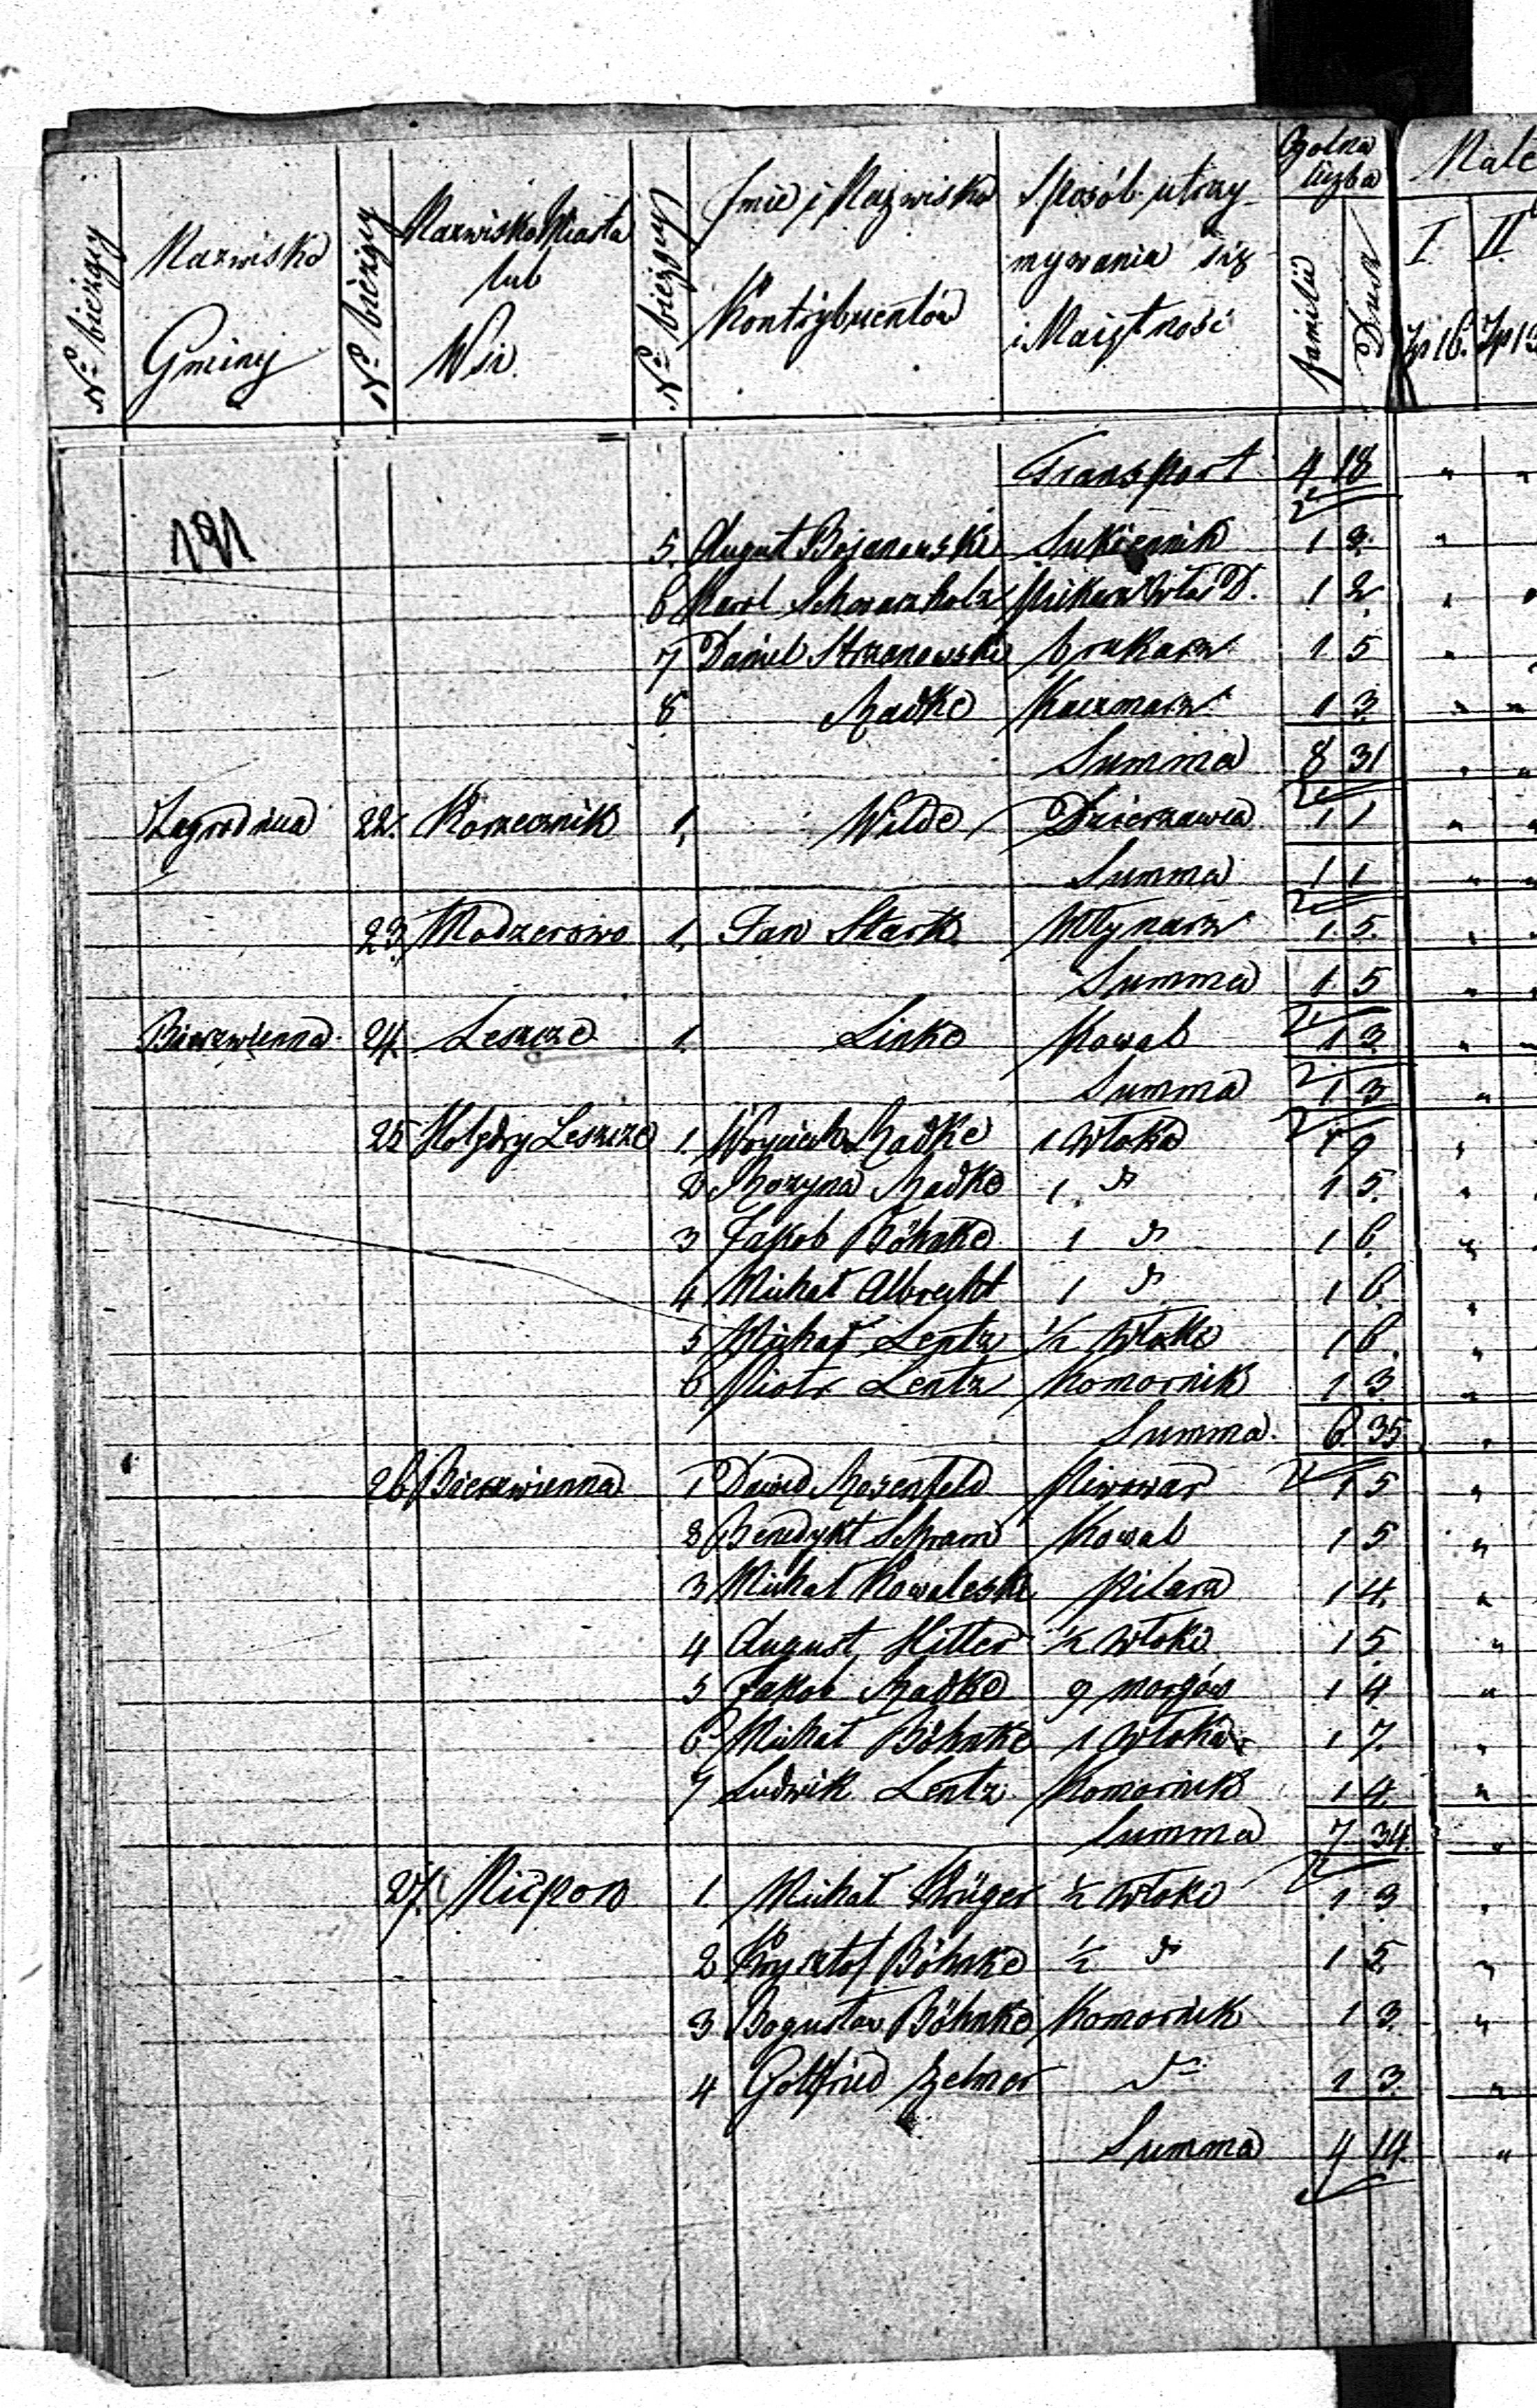 Nº bieżący
Nazwisko Gminy
Nº bieżący
Nazwisko Miasta lub Wsi
Nº bieżący
Imie i Nazwisko Kontrybuentów
Sposób utrzymywania się i Maiętność
Ogolna liczba
familii
Dusz
I.
II.
Transport 4 18
191
5. August Bojanowski Sukiennik 1 3.
6 Karl Schwarzholz Piekarz Właś D. 1 2
7 Daniel Strzanowski 1 5
8 Radke Kaczmarz 1 3.
Summa 8 31
Zagrodnica 22. Korzecznik 1. Wilde Dzierzawca 1 1
Summa 1 1
23. Modzerowo 1. Jan Stark Młynarz 1. 5.
Summa 1 5
Bierzwienna 24. Leszcze 1. Linke Kowal 1 3
Summa 1 3
25 Holędry Leszcze 1. Woyciech Radke 1 włoka 1 9
2 Rozyna Radke 1 " 1 5.
3 Jakob Böhnke 1 " 1 6.
4 Michał Albrecht 1 " 1 6.
5 Michał Lentz ½ włoki 1 6.
6 Piotr Lentz Komornik 1 3
Summa 6 35
26 Bierzwienna 1 Dawid Rosenfeld Piwowar 1 5
2 Benedykt Schram Kowal 1 5
3 Michał Kowaleski Pilarz 1 4.
4 August Hitler ½ włoki 1 5
5 Jakob Radke 9 morgów 1 4
6 Michał Böhnke 1 włoka 1 7.
7 Ludwik Lentz Komornik 1 4
Summa 7 34
27. 1. Michał Krüger ½ włoki 1 3
2 Krysztof Böhnke ½ " 1 5
3 Bogusław Böhnke Komornik 1 3.
4 Gottfried Zelmer 1 3.
Summa 4 14.